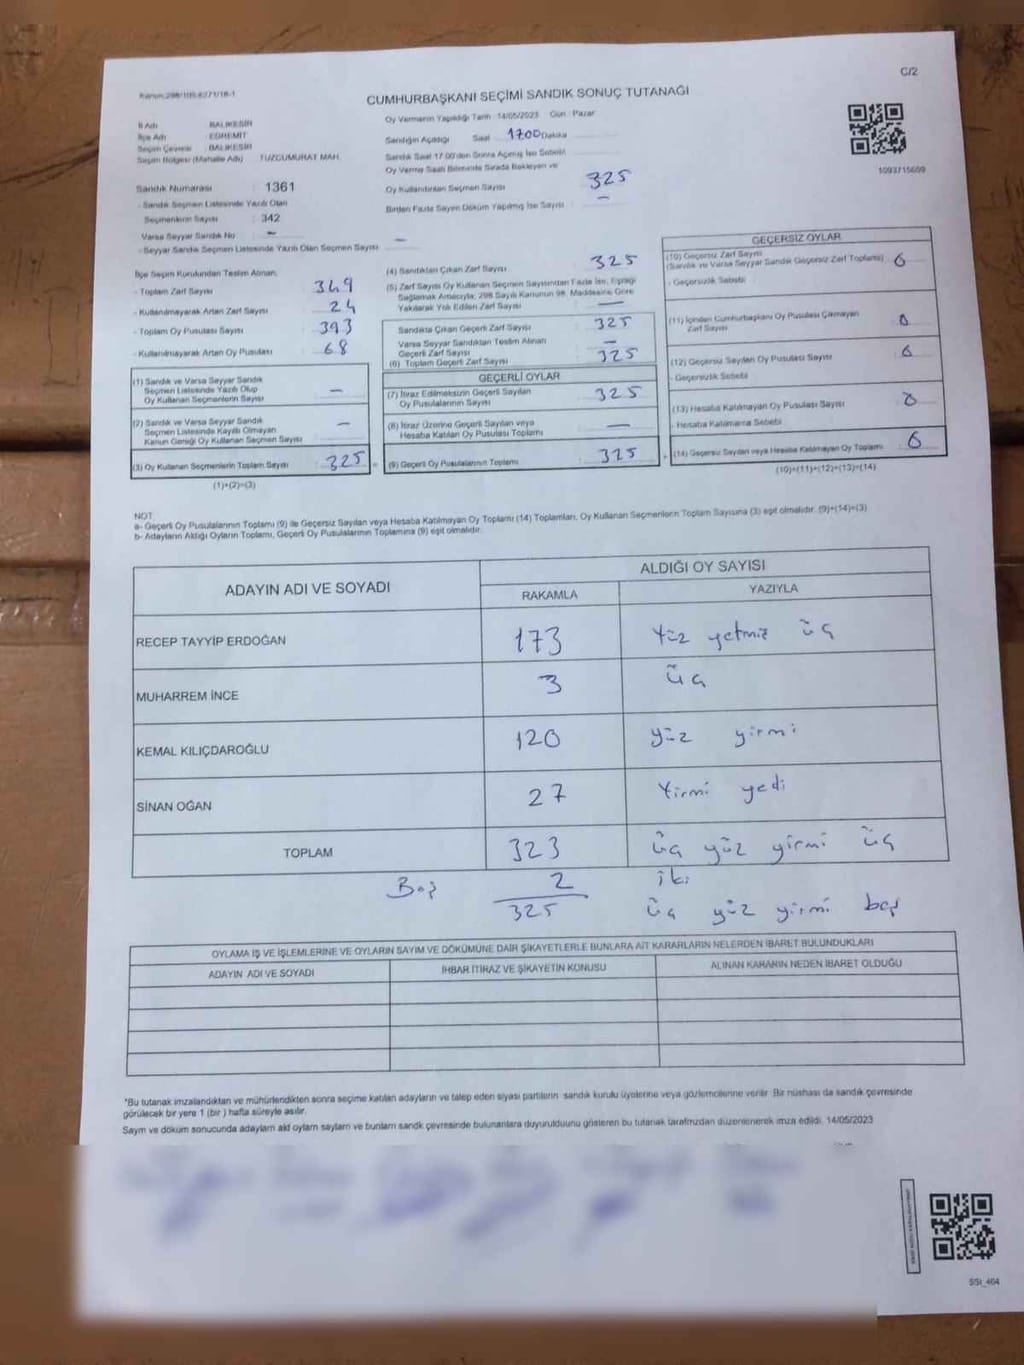 C/2
Kanun:298/105,6271/18-1
CUMHURBAŞKANI SEÇİMİ SANDIK SONUÇ TUTANAĞI
İl Adı BALIKESİR
İlçe Adı : EDREMİT
Seçim Çevresi : BALIKESİR
Seçim Bölgesi (Mahalle Adı) TUZCUMURAT MAH.
Sandık Numarası : 1361
- Sandık Seçmen Listesinde Yazılı Olan
Seçmenlerin Sayısı : 342
Varsa Seyyar Sandık No : -
- Seyyar Sandık Seçmen Listesinde Yazılı Olan Seçmen Sayısı : -
Oy Vermenin Yapıldığı Tarih 14/05/2023 Gün : Pazar
Sandığın Açıldığı Saat : 1700 Dakika
Sandık Saat 17:00'den Sonra Açılmış İse Sebebi
Oy Verme Saati Bitiminde Sırada Bekleyen ve
Oy Kullandırılan Seçmen Sayısı : 325
Birden Fazla Sayım Döküm Yapılmış İse Sayısı : -
1093715609
İlçe Seçim Kurulundan Teslim Alınan;
- Toplam Zarf Sayısı : 349
- Kullanılmayarak Artan Zarf Sayısı : 24
- Toplam Oy Pusulası Sayısı : 393
- Kullanılmayarak Artan Oy Pusulası : 68
(1) Sandık ve Varsa Seyyar Sandık
Seçmen Listesinde Yazılı Olup
Oy Kullanan Seçmenlerin Sayısı : -
(2) Sandık ve Varsa Seyyar Sandık
Seçmen Listesinde Kayıtlı Olmayan
Kanun Gereği Oy Kullanan Seçmen Sayısı : -
(3) Oy Kullanan Seçmenlerin Toplam Sayısı : 325
(1)+(2)=(3)
(4) Sandıktan Çıkan Zarf Sayısı : 325
(5) Zarf Sayısı Oy Kullanan Seçmen Sayısından Fazla İse, Eşitliği
Sağlamak Amacıyla; 298 Sayılı Kanunun 98. Maddesine Göre
Yakılarak Yok Edilen Zarf Sayısı : -
Sandıkta Çıkan Geçerli Zarf Sayısı : 325
Varsa Seyyar Sandıktan Teslim Alınan
Geçerli Zarf Sayısı : -
(6) Toplam Geçerli Zarf Sayısı : 325
GEÇERLİ OYLAR
(7) İtiraz Edilmeksizin Geçerli Sayılan
Oy Pusulalarının Sayısı : 325
(8) İtiraz Üzerine Geçerli Sayılan veya
Hesaba Katılan Oy Pusulası Toplamı : -
(9) Geçerli Oy Pusulalarının Toplamı : 325
GEÇERSİZ OYLAR
(10) Geçersiz Zarf Sayısı
(Sandık ve Varsa Seyyar Sandık Geçersiz Zarf Toplamı) : 0
- Geçersizlik Sebebi
(11) İçinden Cumhurbaşkanı Oy Pusulası Çıkmayan
Zarf Sayısı : 0
(12) Geçersiz Sayılan Oy Pusulası Sayısı : 0
- Geçersizlik Sebebi
(13) Hesaba Katılmayan Oy Pusulası Sayısı : 0
- Hesaba Katılmama Sebebi
(14) Geçersiz Sayılan veya Hesaba Katılmayan Oy Toplamı : 0
(10)+(11)+(12)+(13)=(14)
NOT:
a- Geçerli Oy Pusulalarının Toplamı (9) ile Geçersiz Sayılan veya Hesaba Katılmayan Oy Toplamı (14) Toplamları, Oy Kullanan Seçmenlerin Toplam Sayısına (3) eşit olmalıdır. (9)+(14)=(3)
b- Adayların Aldığı Oyların Toplamı, Geçerli Oy Pusulalarının Toplamına (9) eşit olmalıdır.
ADAYIN ADI VE SOYADI ALDIĞI OY SAYISI
RAKAMLA YAZIYLA
RECEP TAYYİP ERDOĞAN 173 Yüz yetmiş üç
MUHARREM İNCE 3 üç
KEMAL KILIÇDAROĞLU 120 yüz yirmi
SİNAN OĞAN 27 Yirmi yedi
TOPLAM 323 üç yüz yirmi üç
Boş 2 iki
325 üç yüz yirmi beş
OYLAMA İŞ VE İŞLEMLERİNE VE OYLARIN SAYIM VE DÖKÜMÜNE DAİR ŞİKAYETLERLE BUNLARA AİT KARARLARIN NELERDEN İBARET BULUNDUKLARI
ADAYIN ADI VE SOYADI İHBAR İTİRAZ VE ŞİKAYETİN KONUSU ALINAN KARARIN NEDEN İBARET OLDUĞU
*Bu tutanak imzalandıktan ve mühürlendikten sonra seçime katılan adayların ve talep eden siyasi partilerin sandık kurulu üyelerine veya gözlemcilerine verilir. Bir nüshası da sandık çevresinde
görülecek bir yere 1 (bir ) hafta süreyle asılır.
Sayım ve döküm sonucunda adayların aldığı oyların sayıları ve bunların sandık çevresinde bulunanlara duyurulduğunu gösteren bu tutanak tarafımızdan düzenlenerek imza edildi. 14/05/2023
SSI_464